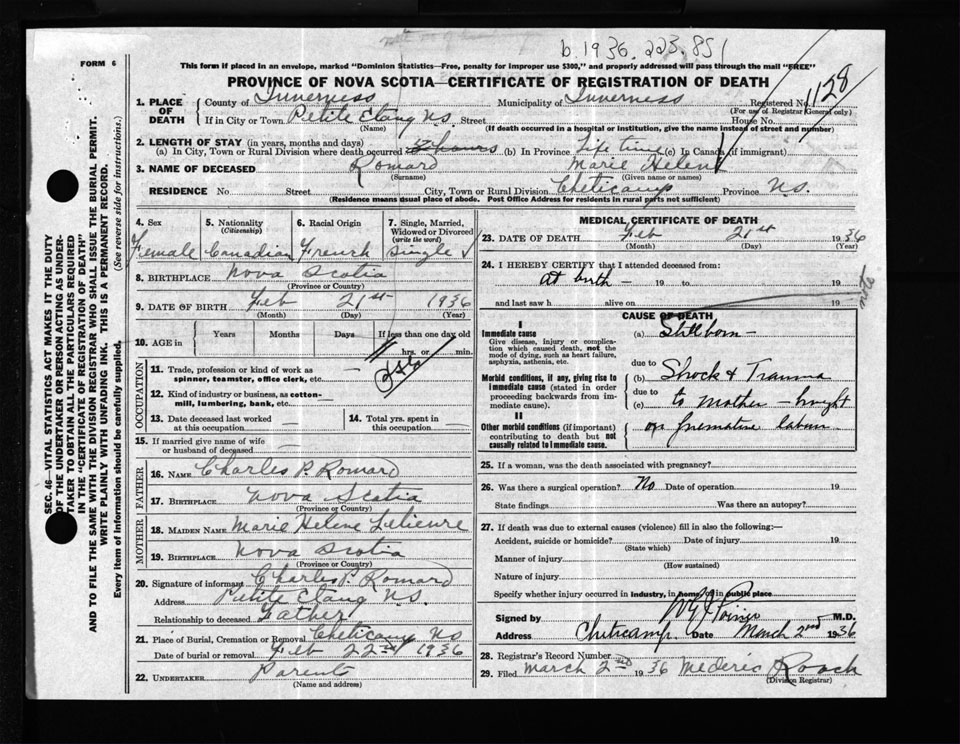 b 1936.223.851
FORM 6
This form if placed in an envelope, marked "Dominion Statistics—Free, penalty for improper use $300," and properly addressed will pass through the mail "FREE"
PROVINCE OF NOVA SCOTIA—CERTIFICATE OF REGISTRATION OF DEATH
1. PLACE OF DEATH County of Inverness Municipality of Inverness Registered No. 1128
(For use of Registrar General only)
If in City or Town Petite Etang N.S. Street House No.
(Name) (If death occurred in a hospital or institution, give the name instead of street and number)
2. LENGTH OF STAY (in years, months and days)
(a) In City, Town or Rural Division where death occurred hours (b) In Province Life time (c) In Canada (if immigrant)
3. NAME OF DECEASED Romard Marie Helene
(Surname) (Given name or names)
RESIDENCE No. Street City, Town or Rural Division Cheticamp Province N.S.
(Residence means usual place of abode. Post Office Address for residents in rural parts not sufficient)
4. Sex 5. Nationality (Citizenship) 6. Racial Origin 7. Single, Married, Widowed or Divorced (write the word)
Female Canadian French Single
8. BIRTHPLACE Nova Scotia
(Province or Country)
9. DATE OF BIRTH Feb 21st 1936
(Month) (Day) (Year)
10. AGE in Years Months Days If less than one day old
hrs. or min.
OCCUPATION
11. Trade, profession or kind of work as spinner, teamster, office clerk, etc. —
12. Kind of industry or business, as cotton-mill, lumbering, bank, etc. —
13. Date deceased last worked at this occupation —
14. Total yrs. spent in this occupation —
15. If married give name of wife or husband of deceased —
FATHER
16. NAME Charles P. Romard
17. BIRTHPLACE Nova Scotia
(Province or Country)
MOTHER
18. MAIDEN NAME Marie Helene Lelievre
19. BIRTHPLACE Nova Scotia
(Province or Country)
20. Signature of informant Charles P. Romard
Address Petite Etang N.S.
Relationship to deceased Father
21. Place of Burial, Cremation or Removal Cheticamp N.S.
Date of burial or removal Feb 22nd 1936
22. UNDERTAKER Parents
(Name and address)
MEDICAL CERTIFICATE OF DEATH
23. DATE OF DEATH Feb 21st 1936
(Month) (Day) (Year)
24. I HEREBY CERTIFY that I attended deceased from:
At birth — 19 to 19
and last saw h alive on 19
CAUSE OF DEATH
I
Immediate cause
Give disease, injury or complication which caused death, not the mode of dying, such as heart failure, asphyxia, asthenia, etc.
(a) Stillborn —
due to
Morbid conditions, if any, giving rise to immediate cause (stated in order proceeding backwards from immediate cause).
(b) Shock & Trauma
due to
(c) to Mother — brought
II
Other morbid conditions (if important) contributing to death but not causally related to immediate cause.
on premature labour
25. If a woman, was the death associated with pregnancy?
26. Was there a surgical operation? No Date of operation 19
State findings Was there an autopsy?
27. If death was due to external causes (violence) fill in also the following:—
Accident, suicide or homicide? Date of injury 19
(State which)
Manner of injury
(How sustained)
Nature of injury
Specify whether injury occurred in industry, in home, or in public place
Signed by M.D.
Address Cheticamp. Date March 2nd 1936
28. Registrar's Record Number
29. Filed March 2nd 1936 Mederic Roach
(Division Registrar)
SEC. 46—VITAL STATISTICS ACT MAKES IT THE DUTY
OF THE UNDERTAKER OR PERSON ACTING AS UNDER-
TAKER TO OBTAIN ALL THE PARTICULARS REQUIRED
IN THE "CERTIFICATE OF REGISTRATION OF DEATH"
AND TO FILE THE SAME WITH THE DIVISION REGISTRAR WHO SHALL ISSUE THE BURIAL PERMIT.
WRITE PLAINLY WITH UNFADING INK. THIS IS A PERMANENT RECORD.
Every item of information should be carefully supplied. (See reverse side for instructions.)